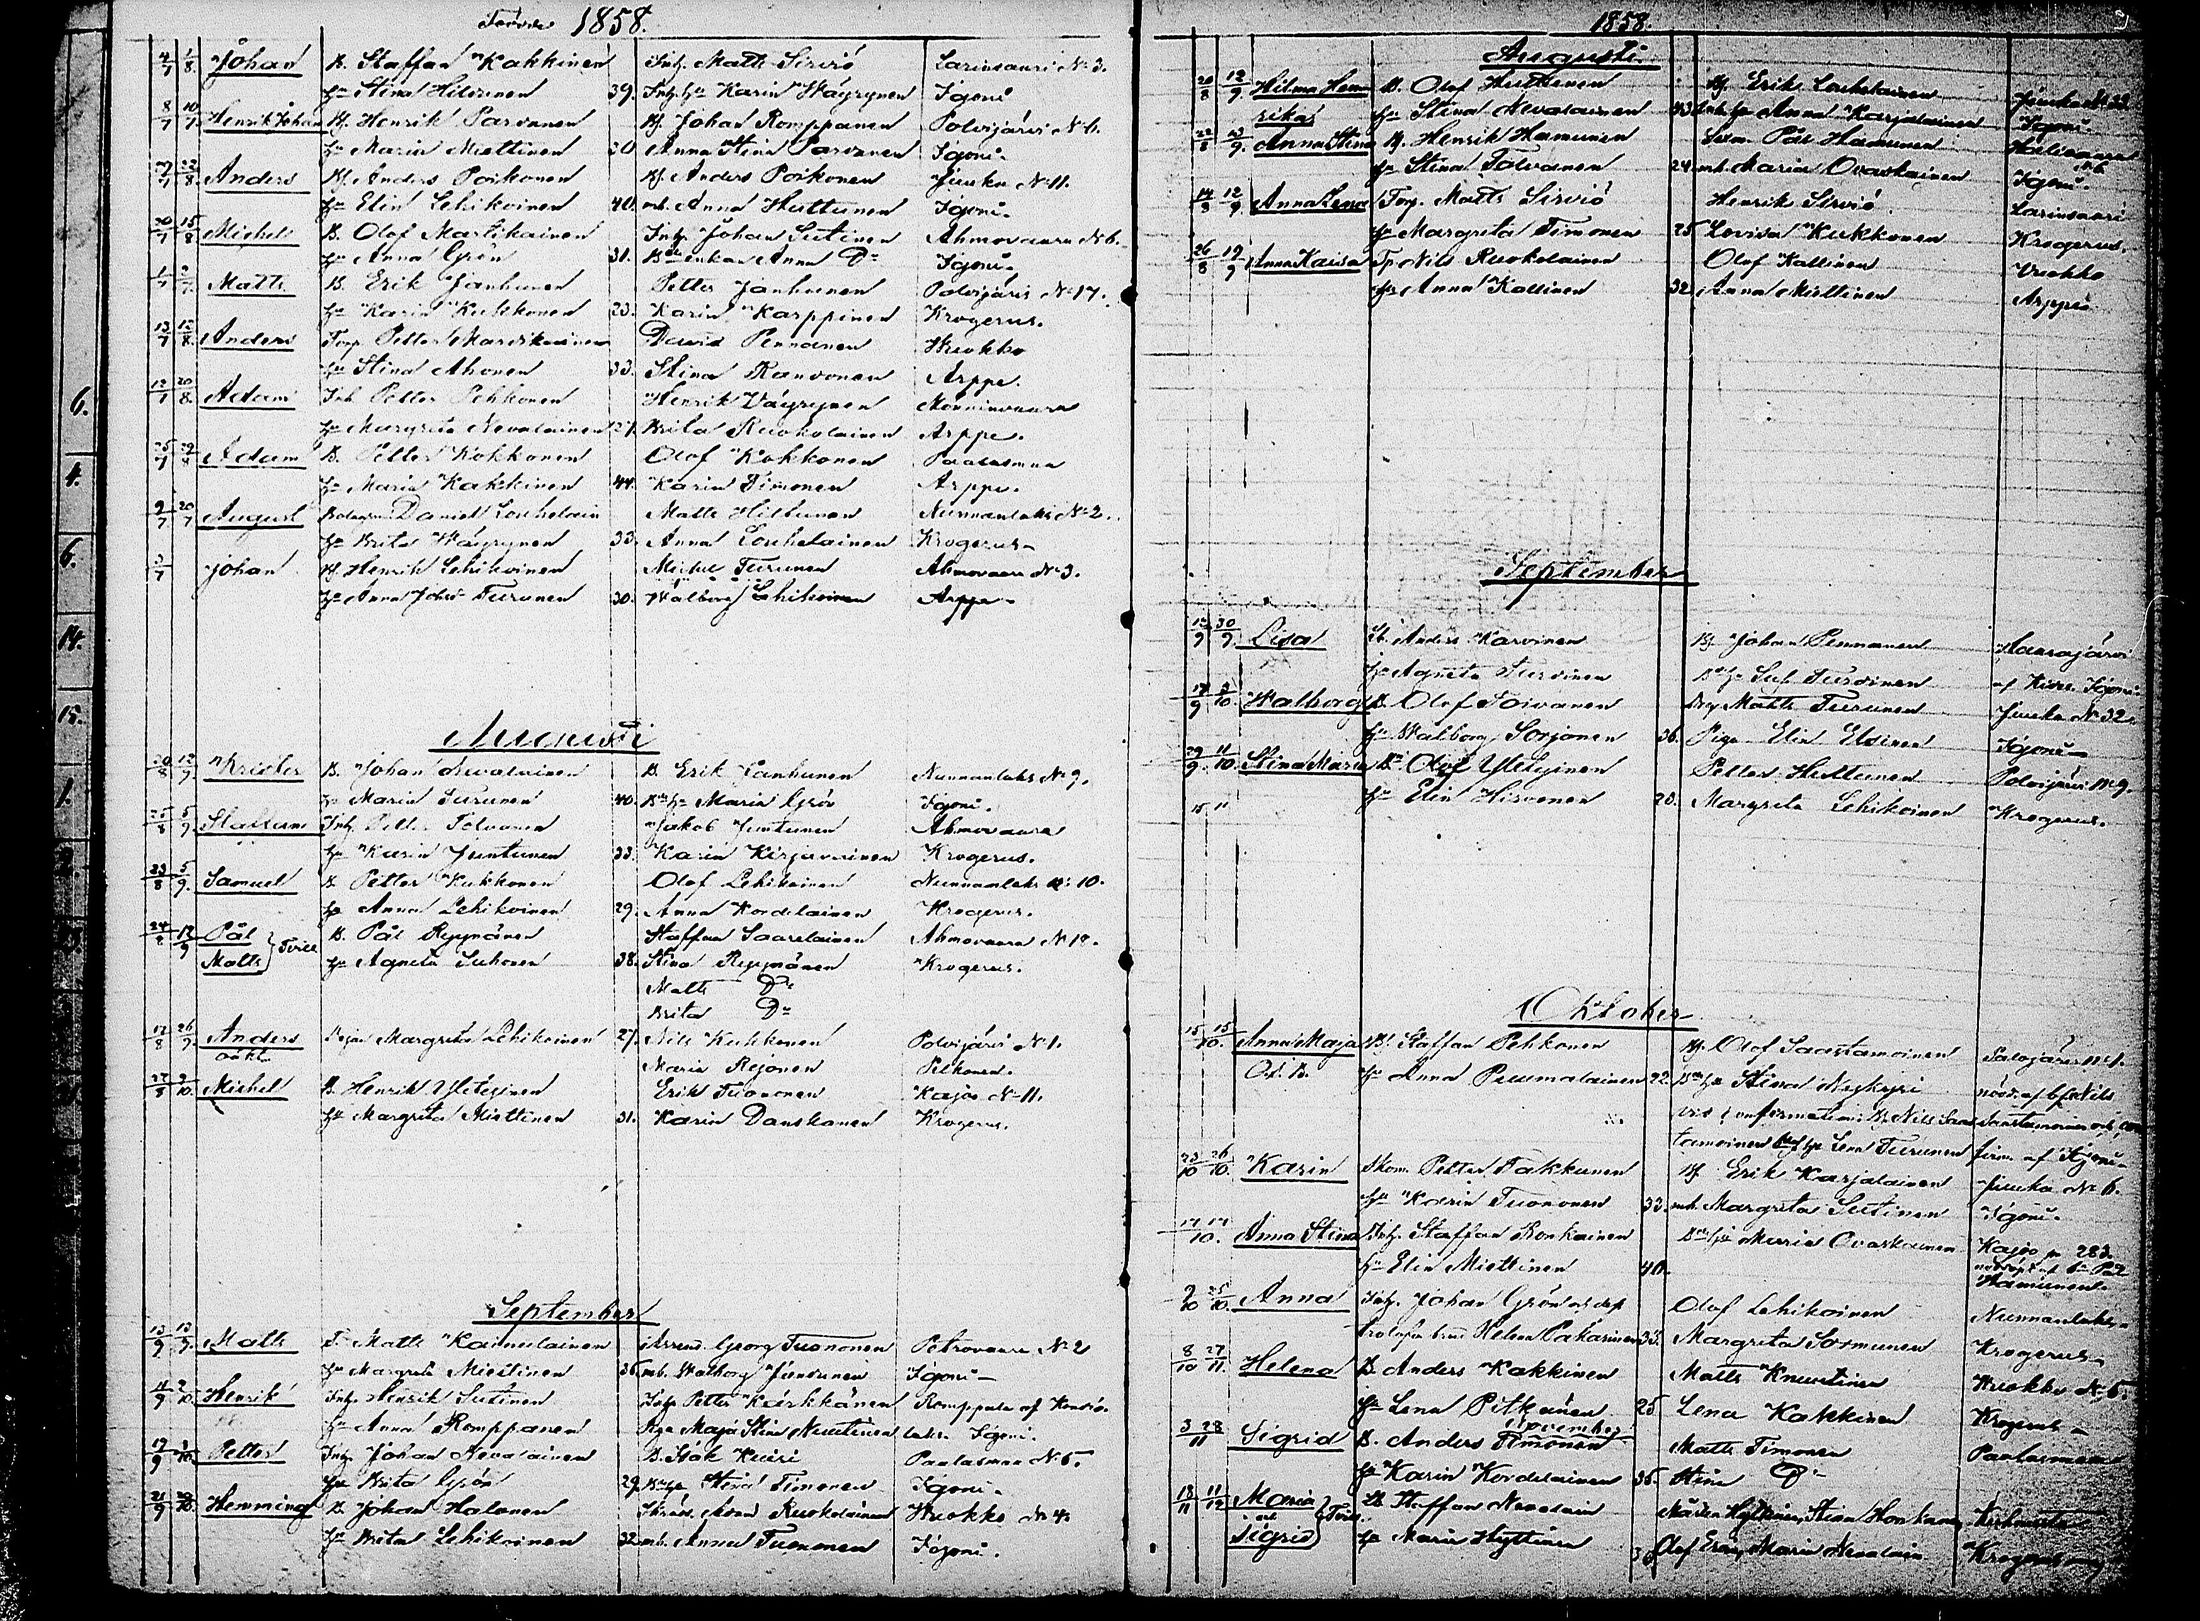 1858.
4/7 1/8 Johan B. Staffan Kakkinen Inh. Matts Sirviö Larinsaari No 3.
hu Stina Hiltunen 39. Inh. hu Karin Wäyrynen Igoni
8/7 10/7 Henrik Johan Bf. Henrik Parvanen Bf. Johan Romppanen Polvijärvi No 6.
hu Maria Miettinen 30 Anna Stina Parvanen Igoni.
22/8 Anders Bf. Anders Poikonen Bf. Anders Poikonen Juuka No 11.
hu Elin Lehikoinen 40. mb. Anna Huttunen Igoni.
20/7 15/8 Michel B. Olof Martikainen Inh. Johan Sutinen Ahmovaara No 6.
hu Anna Grön 31. Anna Do Igoni.
Matts B. Erik Janhunen Petter Janhunen Polvijärvi No 17.
hu Karin Kukkonen 23. Karin Karppinen Krogerus.
13/7 15/8 Anders Torp. Petter Martikainen David Pennanen Wuokko
hu Stina Ahonen 33. Stina Ranvonen Arppe.
12/7 20/8 Adam Inh. Petter Pehkonen Henrik Väyrynen Mönninvaara
hu Margreta Nevalainen 27. Brita Ruokolainen Arppe.
25/7 29/8 Adam B. Petter Kokkonen Olof Kokkonen Paalasmaa
hu Maria Kakkinen 44. Karin Timonen Arppe.
9/7 20/7 August Daniel Louhelain Matts Hiltunen Nunnanlaks No 2.
hu Brita Wäyrynen 33. Anna Louhelainen Krogerus
3/7 Johan Bf. Henrik Lehikoinen Michel Turunen Ahmovaara No 3.
hu Anna Turunen 30. Walborg Lehikoinen Arppe
Augusti
20/8 12/9 Krister B. Johan Nevalainen B. Erik Janhunen Nunnanlaks No 9.
hu Maria Turunen 40. Bm hu Maria Grön Igoni.
25/8 5/9 Staffan Inh. Petter Tolvanen Jakob Juntunen Ahmovaara
hu Karin Juntunen 33. Karin Kirjavainen Krogerus.
23/8 5/9 Samuel B. Petter Kukkonen Olof Lehikoinen Nunnanlaks No 10.
hu Anna Lehikoinen 29. Anna Kordelainen Krogerus.
24/8 12/9 Pål B. Pål Ryynänen Staffan Saarelainen Ahmovaara No 18.
Matts Tvill hu Agneta Tuhonen 38. Stina Ryynänen Krogerus.
Matts Do
Brita Do
12/8 26/9 Anders Pigan Margreta Lehikoinen 27. Nils Kukkonen Polvijärvi No 1.
oäkt. Maria Reijonen Pelkonen.
27/8 3/10 Michel B. Henrik Yletyinen Erik Tuononen Kajoo No 11.
hu Margreta Miettinen 31. Karin Danskanen Krogerus.
September
13/9 13/9 Matts T. Matts Kainulainen Arrend. Georg Tuononen Petrovaara No 2
hu Margreta Miettinen 36. mb. Walborg Igoni
Henrik Inh. Henrik Sutinen Inh. Petter Kärkkänen Romppala af Kontio.
hu Anna Romppanen Pga Maja Stina Nuutinen Igoni.
Petter Inh. Johan Nevalainen B. Isak Kuiri Paalasmaa No 5.
hu Brita Grön 29. Stina Timonen Igoni.
21/9 Hemming B. Johan Halonen Skräd. Adam Ruokolainen Wuokko No 4
hu Brita Lehikoinen 32. mb. Anna Tuononen Igoni.
6.
4.
6.
14.
15.
1.
1858.
Augusti.
20/8 12/9 Hilma Hen B. Olof Huttunen Bf. Erik Louhelainen Juuka No 33
rika hu Stina Nevalainen 43. Inh. hu Anna Karjalainen Igoni.
22/8 23/9 Anna Stina Bf. Henrik Hamunen Pål Hamunen
hu Stina Tolvanen 24. mb. Maria Ovaskainen Igoni.
14/8 12/9 Anna Lena Torp. Matts Sirviö Henrik Sirviö Larinsaari
hu Margreta Timonen 25. Lovisa Kukkonen Krogerus.
26/8 19/9 Anna Kaisa Tp. Nils Ruokolainen Olof Kallinen Wuokko
hu Anna Kallinen 32. Anna Miettinen Arppe
September
12/9 30/9 Lisa Anders Karvinen Bf. Johan Pennanen
hu Agneta Turvinen Turvinen af Igoni
17/9 3/10 Walborg B. Olof Toivanen Matts Turunen Juuka No 32.
hu Walborg Sorjonen 36. Piga Elin Igoni
29/9 11/10 Stina Maria Bf. Olof Yletyinen Petter Huttunen Polvijärvi No 9.
15 11 hu Elin Hirvonen 28. Margreta Lehikoinen Krogerus.
Oktober
15 15/10 Anna Maja Bf. Staffan Pehkonen Bf. Olof Saastamoinen No 1.
hu Anna Puumalainen 22. Bm hu Stina nöddöpt af Nils
vid confirmation: Nils Saas Saastamoinen och con
tamoinen hu Lena Turunen firm. af Igoni
23/10 26/10 Karin Skom. Petter Takkunen Bf. Erik Karjalainen Juuka No 6.
hu Karin Tuononen 33. mb. Margreta Sutinen Igoni.
17 17/10 Anna Stina Inh. Staffan Ronkainen Bm hu Maria Ovaskainen Kajoo p. 283.
hu Elin Miettinen 40. nöddöpt af Pål
Hamunen.
2/10 25/10 Anna Inh. Johan Grön Olof Lehikoinen Nunnanlaks
Helena Pakarinen 33. Margreta Sormunen Krogerus
8/10 27/11 Helena B. Anders Kakkinen Matts Knuutinen Wuokko No 5.
hu Lena Pitkänen 25. Lena Kakkinen Krogerus
November
3/11 28 Sigrid B. Anders Timonen Matts Timonen Paalasmaa
hu Karin Kordelainen 36. Stina Do
18/11 11/12 Maria B. Staffan Nevalain Mårten Hyttinen, Stina Honkanen
och Sigrid Tvill. hu Maria Hyttinen Olof Maria Nevalain Krogerus